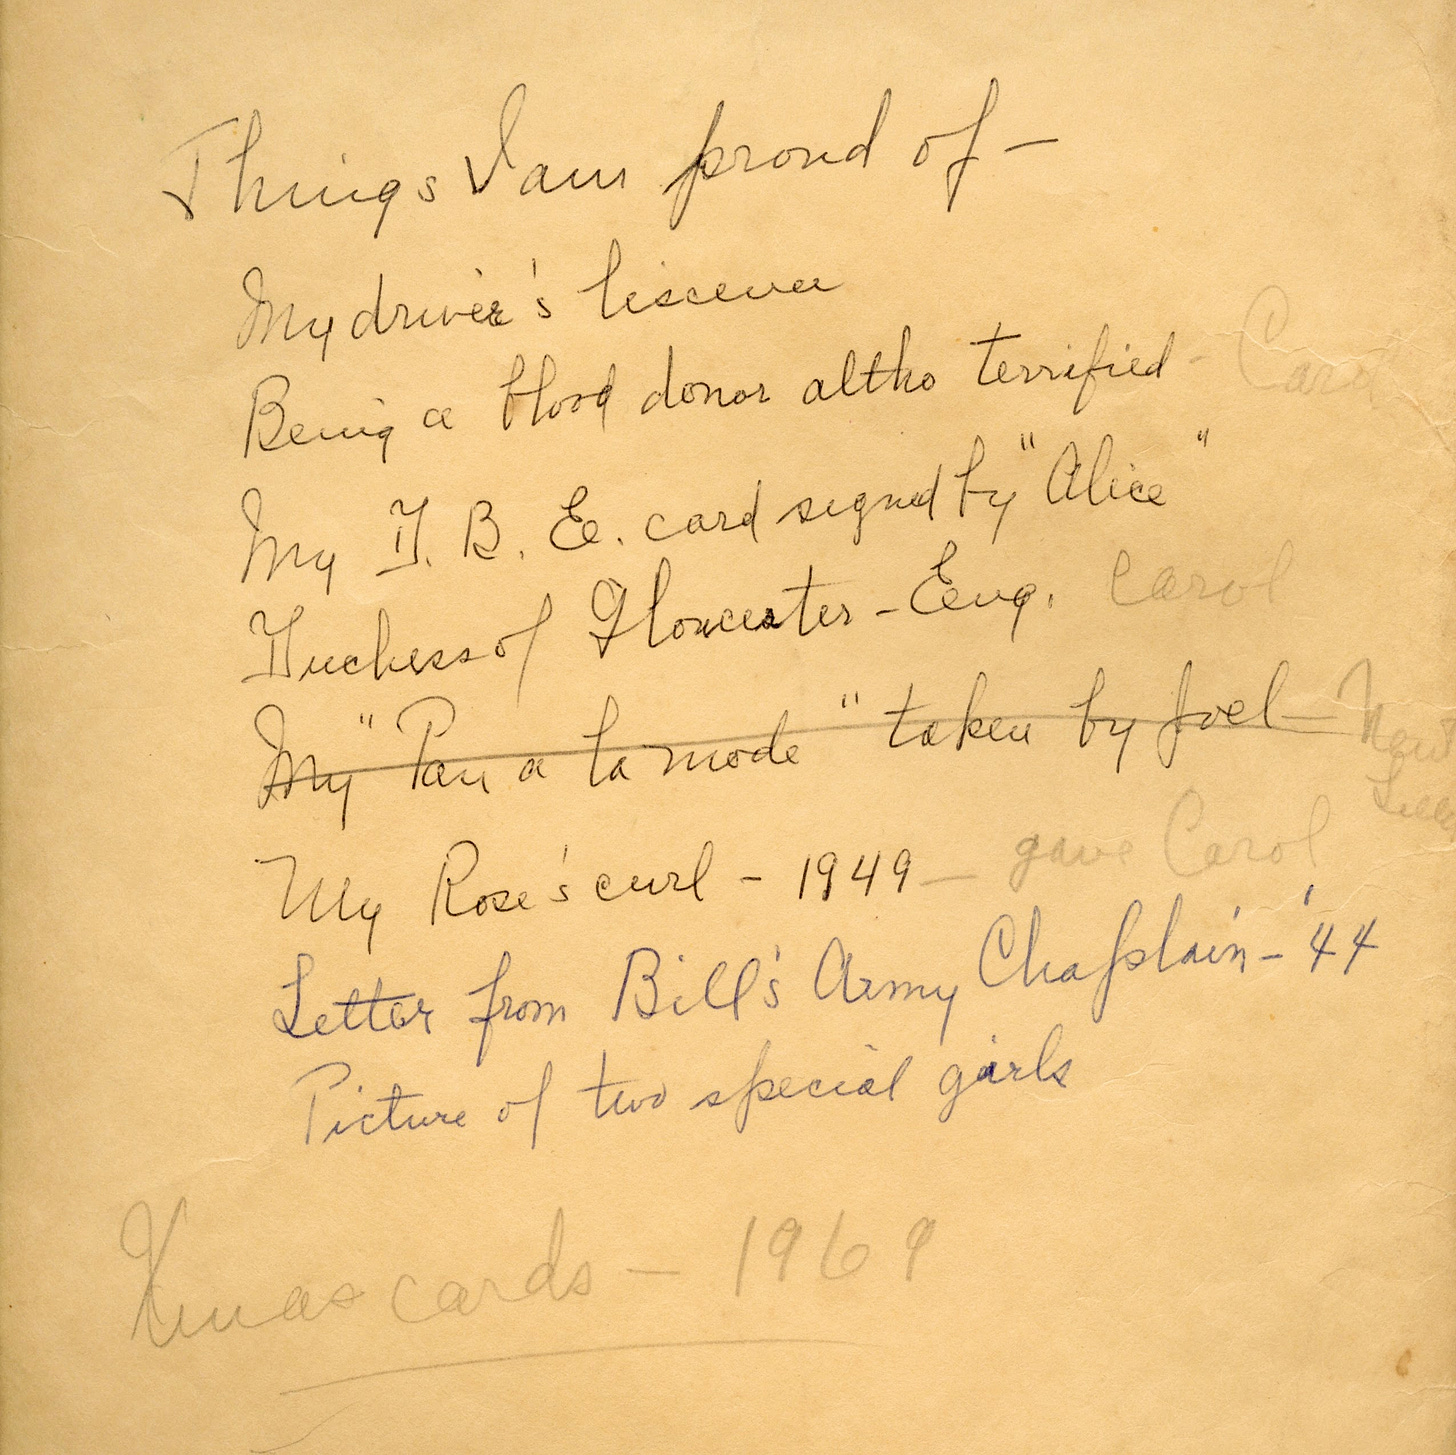 Things I am proud of –
My driver's liscense
Being a blood donor altho terrified – Carol
My D. B. E. card signed by "Alice"
Duchess of Gloucester – Eng. Carol
My "Pan a la mode" taken by Joel –
My Rose's curl – 1949 – gave Carol
Letter from Bill's Army Chaplain – '44
Picture of two special girls
Xmas cards – 1969